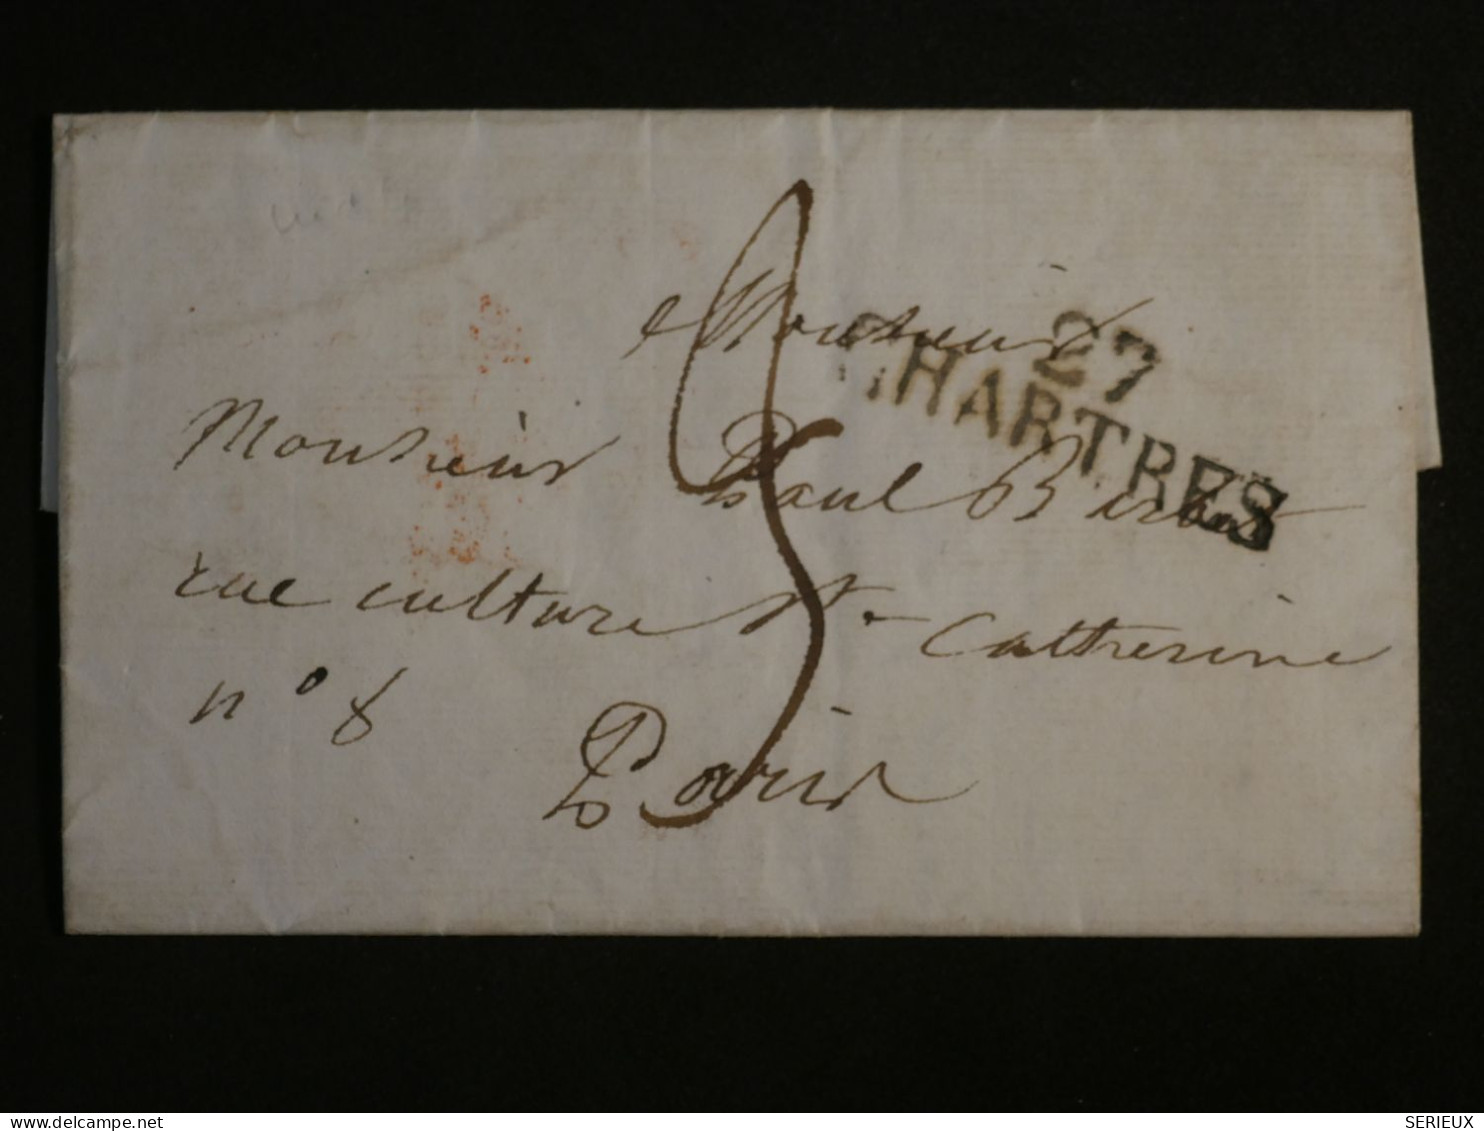 Monsieur
27
CHARTRES
Monsieur Paul
rue culture Ste Catherine
n° 8
Paris
www.delcampe.net
SERIEUX